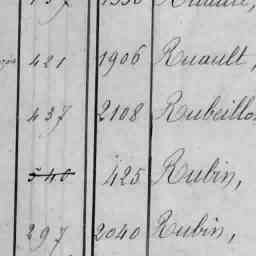 421 1906 Ruault,
437 2108 Rubeillo
540 425 Rubin,
297 2040 Rubin,